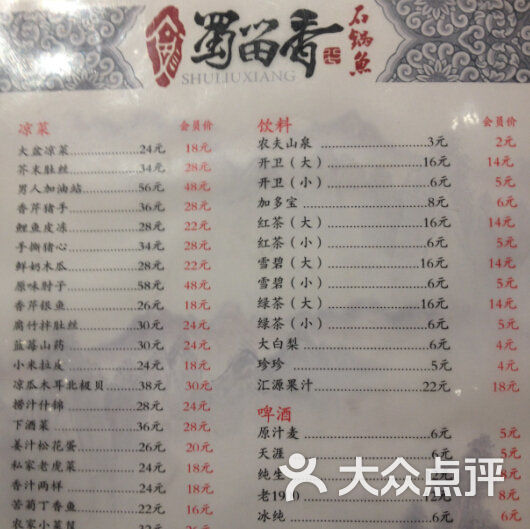 蜀留香
SHULIUXIANG
石锅鱼
凉菜 会员价
大盆凉菜 24元 18元
芥末肚丝 34元 28元
男人加油站 56元 48元
香芹猪手 36元 28元
鲤鱼皮冻 28元 22元
手撕猪心 34元 28元
鲜奶木瓜 28元 22元
原味肘子 58元 48元
香芹银鱼 26元 18元
腐竹拌肚丝 30元 24元
蓝莓山药 30元 24元
小米拉皮 24元 18元
凉瓜木耳北极贝 38元 30元
捞汁什锦 28元 24元
下酒菜 36元 28元
姜汁松花蛋 26元 20元
私家老虎菜 24元 18元
香汁两样 24元 18元
苦菊丁香鱼 22元 16元
农家小菜
饮料 会员价
农夫山泉 3元 2元
开卫（大） 16元 14元
开卫（小） 6元 5元
加多宝 8元 6元
红茶（大） 16元 14元
红茶（小） 6元 5元
雪碧（大） 16元 14元
雪碧（小） 6元 5元
绿茶（大） 16元 14元
绿茶（小） 6元 5元
大白梨 6元 4元
珍珍 5元 4元
汇源果汁 22元 18元
啤酒
原汁麦 6元 5元
天涯 6元 5元
纯生 8元
老19 0 12元 8元
冰纯 6元 6元
大众点评